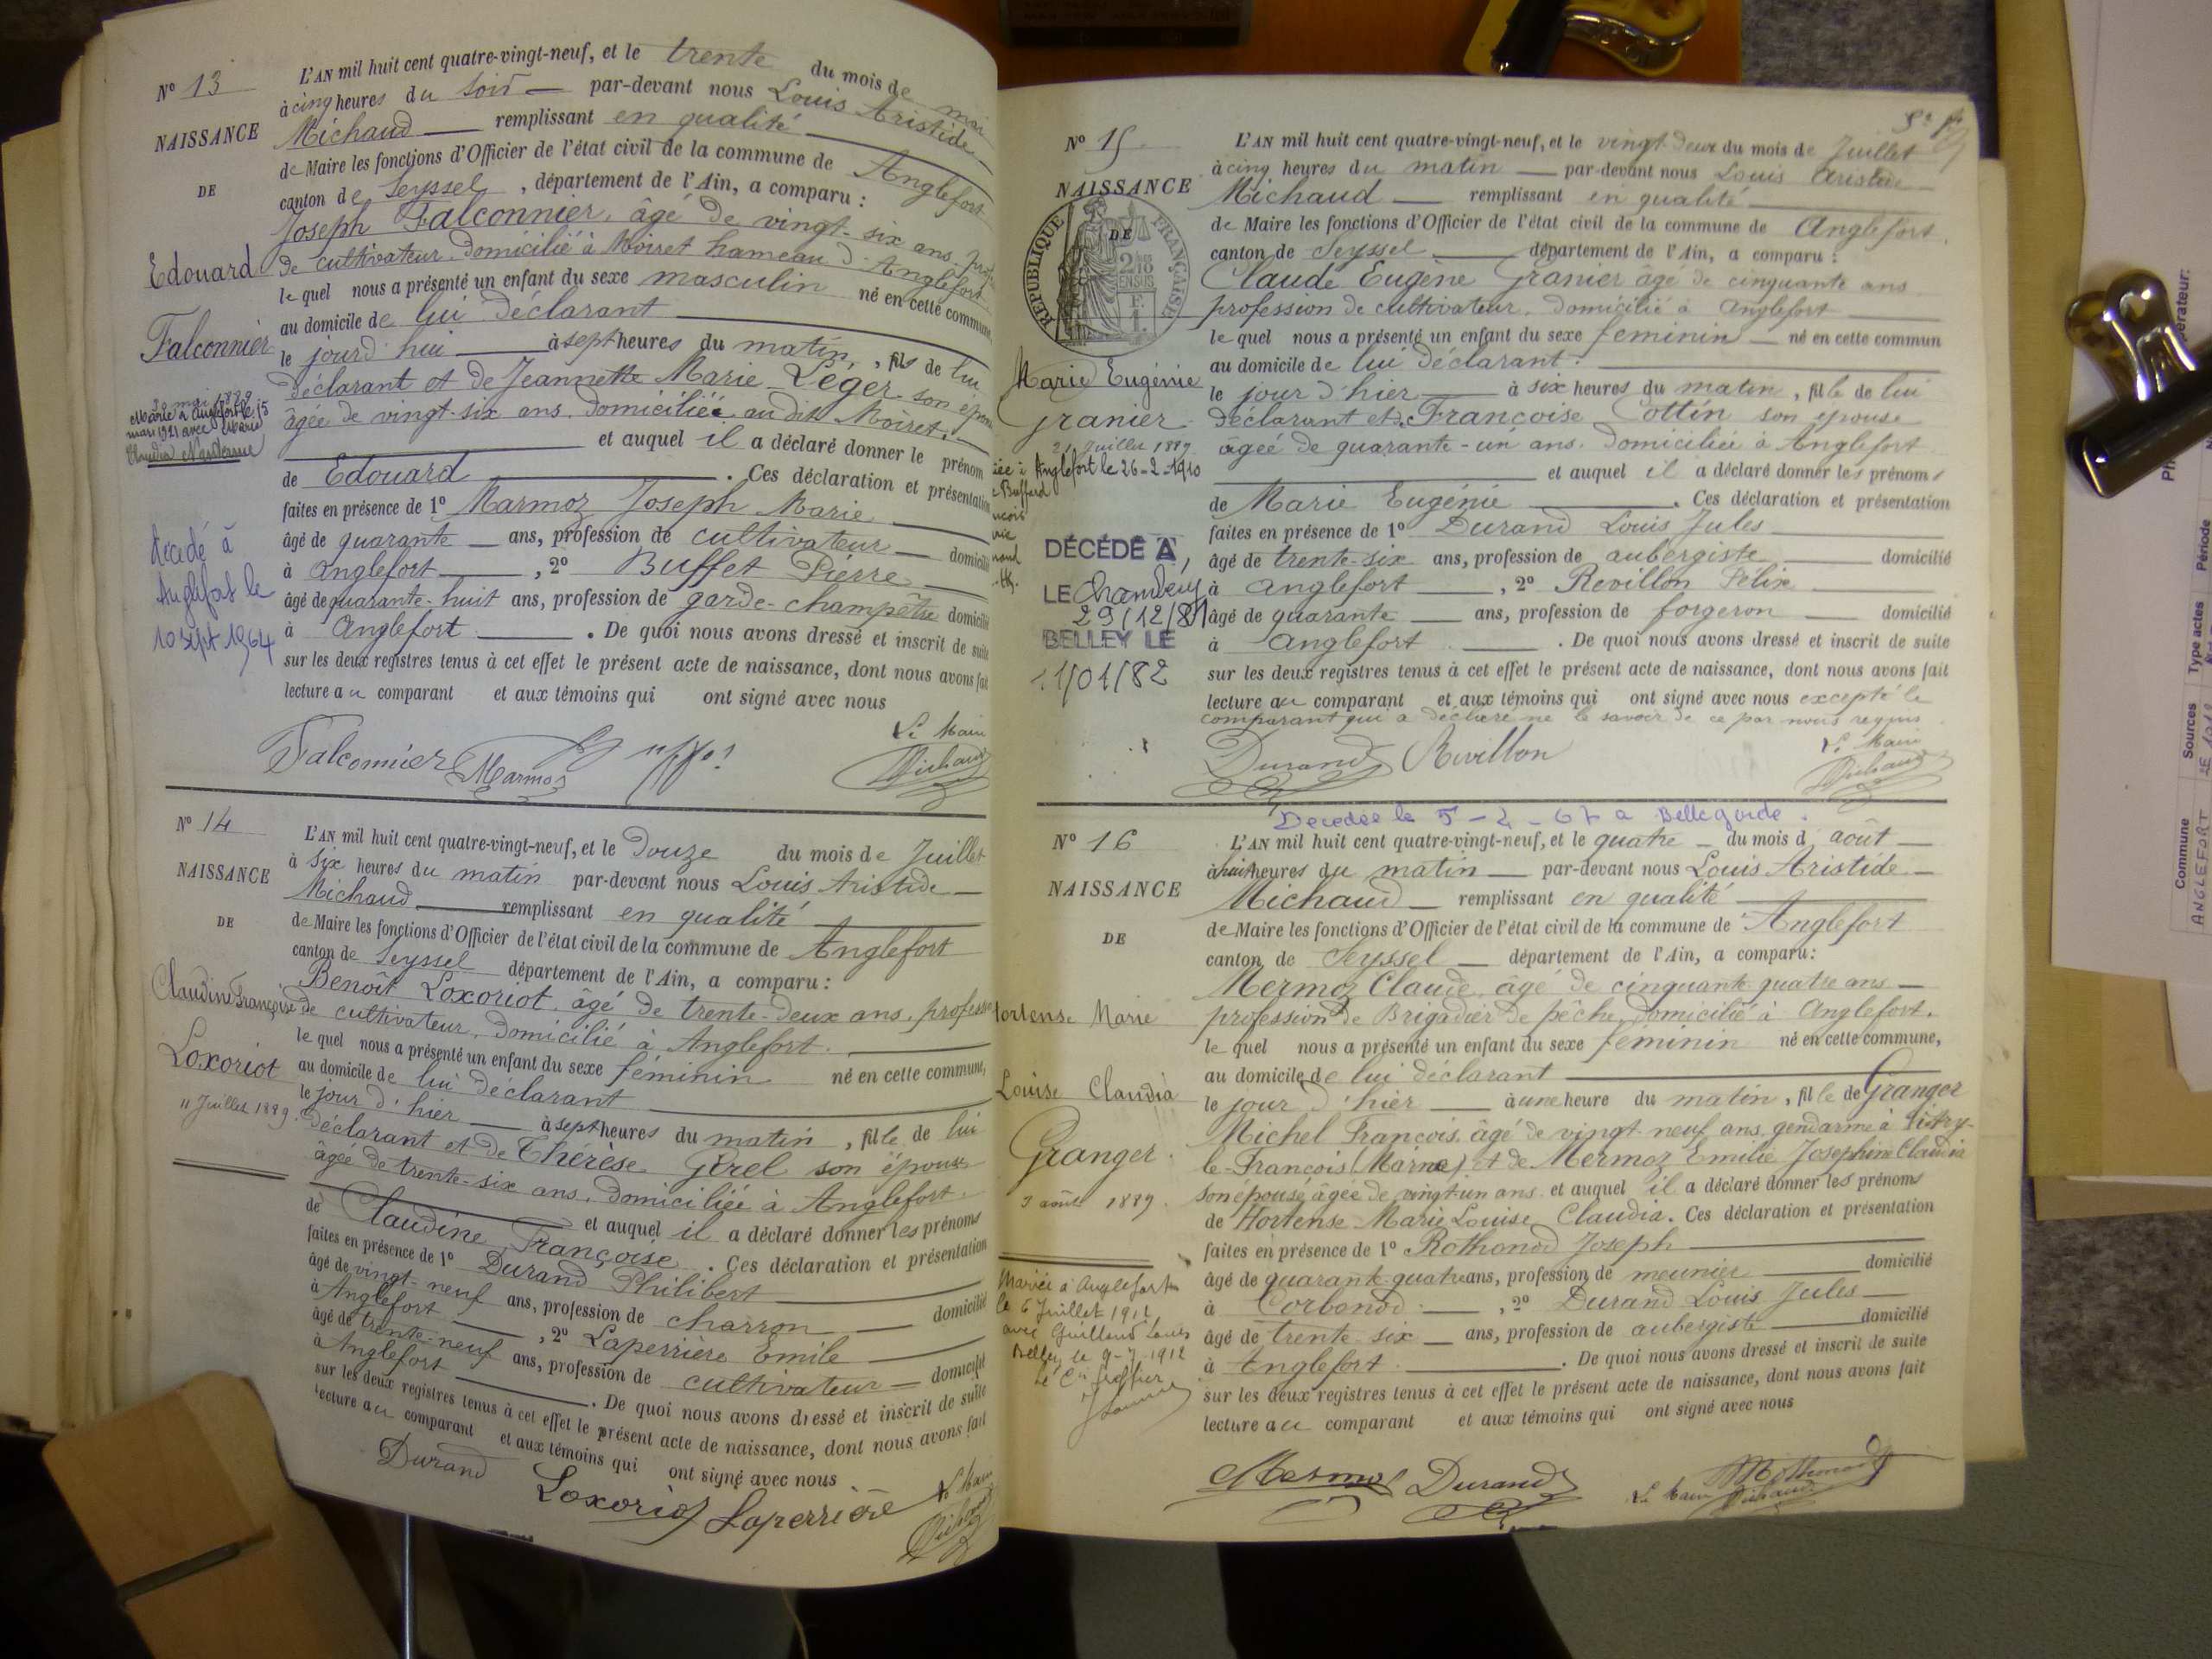 N° 13
NAISSANCE
DE
Edouard
Falconnier
30 mai 1889
Marié à Anglefort le 15
mars 1921 avec Marie
Claudia
Décédé à
Anglefort le
10 sept 1964
L'AN mil huit cent quatre-vingt-neuf, et le trente du mois de mai
à cinq heures du soir par-devant nous Louis Aristide
Michaud remplissant en qualité
de Maire les fonctions d'Officier de l'état civil de la commune de Anglefort
canton de Seyssel, département de l'Ain, a comparu :
Joseph Falconnier, âgé de vingt-six ans, prof
de cultivateur, domicilié à Moiret hameau d'Anglefort
lequel nous a présenté un enfant du sexe masculin né en cette commune,
au domicile de lui déclarant
le jourd'hui à sept heures du matin, fils de lui
déclarant et de Jeannette Marie Léger son épouse
âgée de vingt-six ans, domiciliée au dit Moiret.
et auquel il a déclaré donner le prénom
de Edouard. Ces déclaration et présentation
faites en présence de 1° Marmoz Joseph Marie
âgé de quarante ans, profession de cultivateur domicilié
à Anglefort, 2° Buffet Pierre
âgé de quarante-huit ans, profession de garde-champêtre domicilié
à Anglefort. De quoi nous avons dressé et inscrit de suite
sur les deux registres tenus à cet effet le présent acte de naissance, dont nous avons fait
lecture au comparant et aux témoins qui ont signé avec nous
Le Maire
Falconnier Marmoz Michaud
N° 14
NAISSANCE
DE
Claudine Françoise
Loxoriot
11 Juillet 1889.
L'AN mil huit cent quatre-vingt-neuf, et le douze du mois de Juillet
à six heures du matin par-devant nous Louis Aristide
Michaud remplissant en qualité
de Maire les fonctions d'Officier de l'état civil de la commune de Anglefort
canton de Seyssel département de l'Ain, a comparu :
Benoît Loxoriot, âgé de trente-deux ans, profession
de cultivateur, domicilié à Anglefort.
lequel nous a présenté un enfant du sexe féminin né en cette commune,
au domicile de lui déclarant
le jour d'hier à sept heures du matin, fille de lui
déclarant et de Thérèse Girel son épouse
âgée de trente-six ans, domiciliée à Anglefort.
et auquel il a déclaré donner les prénoms
de Claudine Françoise. Ces déclaration et présentation
faites en présence de 1° Durand Philibert
âgé de vingt-neuf ans, profession de charron domicilié
à Anglefort, 2° Laperrière Emile
âgé de trente-neuf ans, profession de cultivateur domicilié
à Anglefort. De quoi nous avons dressé et inscrit de suite
sur les deux registres tenus à cet effet le présent acte de naissance, dont nous avons fait
lecture au comparant et aux témoins qui ont signé avec nous
Durand Loxoriot Laperrière Le Maire
Michaud
N° 15
NAISSANCE
DE
RÉPUBLIQUE FRANÇAISE
Marie Eugénie
Granier
21 Juillet 1889
Anglefort le 26-2-1910
Buffard
DÉCÉDÉ A
LE Chambéry
29/12/81
BELLEY LE
11/01/82
L'AN mil huit cent quatre-vingt-neuf, et le vingt-deux du mois de Juillet
à cinq heures du matin par-devant nous Louis Aristide
Michaud remplissant en qualité
de Maire les fonctions d'Officier de l'état civil de la commune de Anglefort,
canton de Seyssel département de l'Ain, a comparu :
Claude Eugène Granier âgé de cinquante ans
profession de cultivateur, domicilié à Anglefort
lequel nous a présenté un enfant du sexe féminin né en cette commun
au domicile de lui déclarant.
le jour d'hier à six heures du matin, fille de lui
déclarant et de Françoise Cottin son épouse
âgée de quarante-un ans, domiciliée à Anglefort
et auquel il a déclaré donner les prénoms
de Marie Eugénie. Ces déclaration et présentation
faites en présence de 1° Durand Louis Jules
âgé de trente-six ans, profession de aubergiste domicilié
à Anglefort, 2° Revillon Félix
âgé de quarante ans, profession de forgeron domicilié
à Anglefort. De quoi nous avons dressé et inscrit de suite
sur les deux registres tenus à cet effet le présent acte de naissance, dont nous avons fait
lecture au comparant et aux témoins qui ont signé avec nous excepté le
comparant qui a déclaré ne le savoir de ce par nous requis
Durand Revillon Le Maire
Michaud
Décédée le 5-2-67 à Bellegarde.
N° 16
NAISSANCE
DE
Hortense Marie
Louise Claudia
Granger.
3 août 1889.
Mariée à Anglefort
le 6 Juillet 1912
avec Guilland Louis
Belley le 9-7-1912
Le Cis Greffier
L'AN mil huit cent quatre-vingt-neuf, et le quatre du mois d'août
à huit heures du matin par-devant nous Louis Aristide
Michaud remplissant en qualité
de Maire les fonctions d'Officier de l'état civil de la commune de Anglefort
canton de Seyssel département de l'Ain, a comparu:
Mermoz Claude, âgé de cinquante quatre ans
profession de Brigadier de pêche, domicilié à Anglefort.
lequel nous a présenté un enfant du sexe féminin né en cette commune,
au domicile de lui déclarant
le jour d'hier à une heure du matin, fille de Granger
Michel François, âgé de vingt-neuf ans, gendarme à Vitry-
le-François (Marne) et de Mermoz Emilie Josephine Claudia
son épouse âgée de vingt-un ans et auquel il a déclaré donner les prénoms
de Hortense Marie Louise Claudia. Ces déclaration et présentation
faites en présence de 1° Rothonod Joseph
âgé de quarante-quatre ans, profession de meunier domicilié
à Corbonod, 2° Durand Louis Jules
âgé de trente-six ans, profession de aubergiste domicilié
à Anglefort. De quoi nous avons dressé et inscrit de suite
sur les deux registres tenus à cet effet le présent acte de naissance, dont nous avons fait
lecture au comparant et aux témoins qui ont signé avec nous
Mermoz Durand Rothonod
Le Maire Michaud
Commune Sources Type actes Période
ANGLEFORT